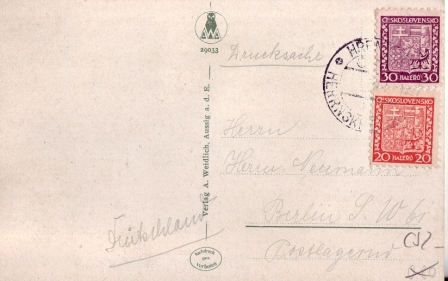 29033
Drucksache
Verlag A. Weidlich, Aussig a. d. E.
ČESKOSLOVENSKO
30 HALÉŘŮ 30
ČESKOSLOVENSKO
20 HALÉŘŮ 20
Herrn
Neumann
Berlin S. W 61
Postlagernd
Deutschland
Nachdruck
verboten